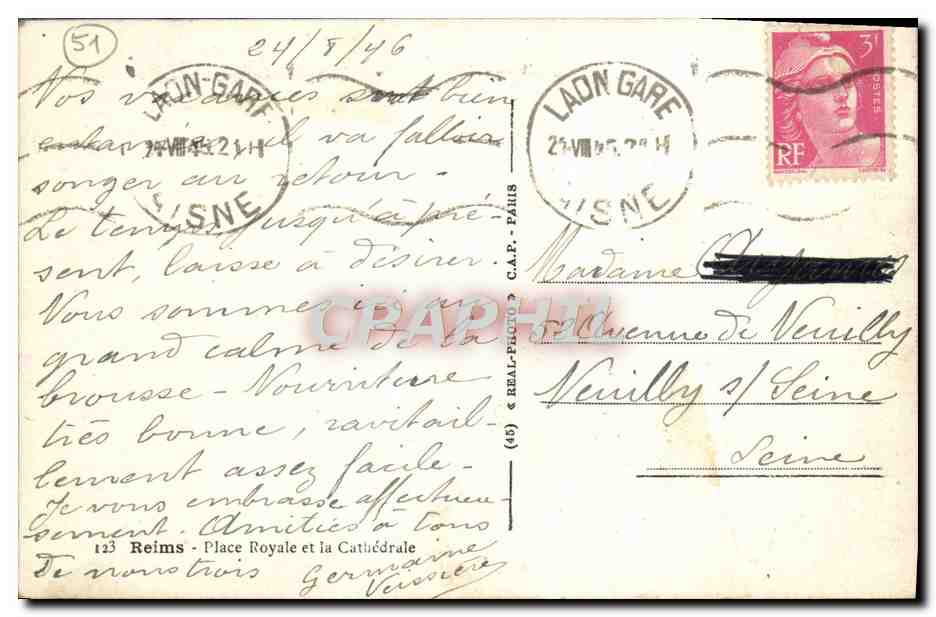 51
24/8/46
Vos vacances sont bien
entamées, il va falloir
songer au retour.
Le temps jusqu'à pré-
sent, laisse à désirer.
Nous sommes ici au
grand calme de la
brousse - Nourriture
très bonne, ravitail-
lement assez facile -
Je vous embrasse affectueu-
sement. Amitiés à tous
De nous trois
Germaine
Veissière
123 Reims - Place Royale et la Cathédrale
(45) « REAL-PHOTO » C.A.P. - PARIS
LAON-GARE
AISNE
LAON GARE
AISNE
3F
POSTES
RF
Madame
52 Avenue de Neuilly
Neuilly s/ Seine
Seine
CPAPHIL